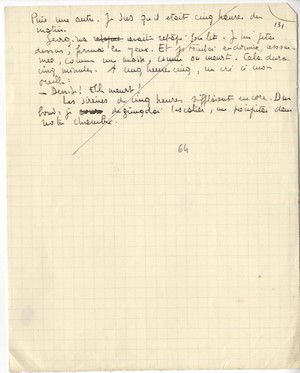 Puis une autre. Je dus qu'il était cinq heures du
131
matin.
avait refait son lit. Je me jetai
dessus, fermai les yeux. Et je m'endormis,
comme une masse, comme on meurt. Cela dura
cinq minutes. A cinq heures cinq, un cri à mon
oreille:
— Denis! Elle meurt!
Les sirènes de cinq heures sifflèrent encore. D'un
bond, je dégringolai l'escalier, me précipitai dans
notre chambre.
64